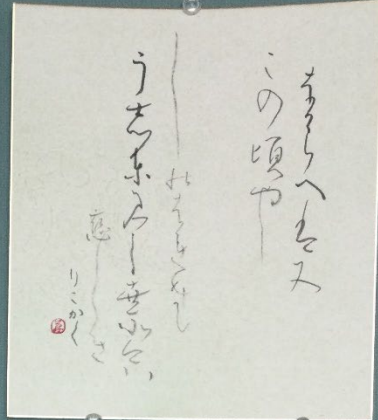 なからへは又
この頃や
しのはれむ
うしと見し世そ今ハ
恋しき
りこかく